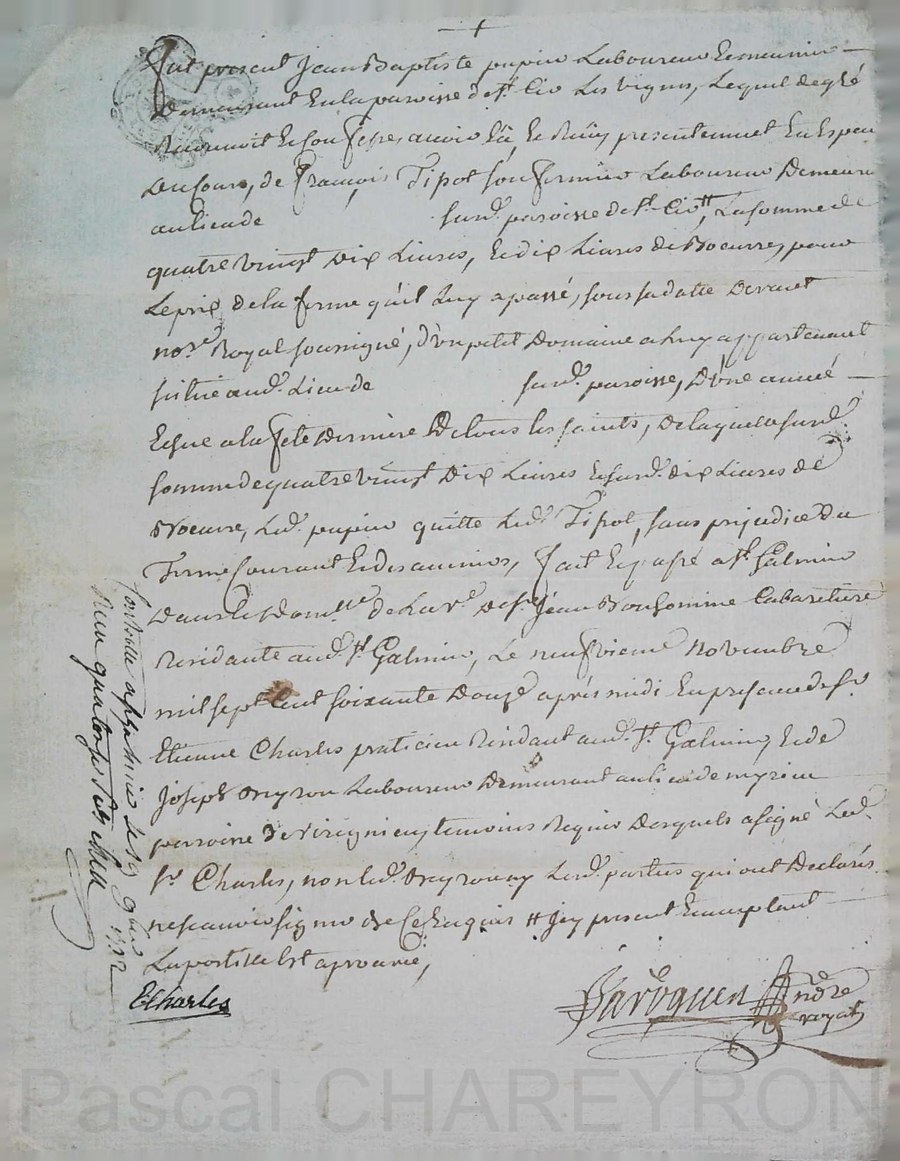 fut présent Jean Baptiste pupier Laboureur Et meunier
Demeurant En la paroisse de St. Cir Les vignes, Lequel de gré
Reconnoit Et Confesse, avoir Eü, Et Reçu, presentement En Espece
Du Cours, de François Tipot son fermier Laboureur Demeurant
au lieu de surd. paroisse de St. Cir ♯, La somme de
quatre vingt Dix Livres, Et dix Livres de Boeurre, pour
Le prix de la ferme qu'il Luy a passé, sous sa datte Devant
nore. Royal soussigné, d'un petit Domaine a Luy appartenant
situé aud. Lieu de surd. paroisse, D'une année
Echue a la fete Derniere De tous les saints, De laquelle surd.
somme de quatre vingt Dix Livres Et surd. dix Livres de
Boeurre, Led. pupier quitte Led. Tipot, sans prejudice du
Terme Courant Et des autres, fait Et passé a St. Galmier
Dans le Domlle. de La ve. De Sr. Jean Bonhomme Cabaretiere
Residante aud. St. Galmier, Le neufvieme novembre
mil sept Cent soixante Douze après midi En presence de Sr.
Etienne Charles praticien Residant aud. St. Galmier, Et de
Joseph Meyron Laboureur Demeurant au lieu de
paroisse de temoins Requis Desquels a signé Led.
Sr. Charles, non led. ny Les d. parties qui ont Declarés
ne scavoir signer de Ce Enquis ♯ Icy present Et acceptant
La postille Est aprouvée,
ECharles
nore
royal
Controllé a St. Galmier Le 9bre 1772
Reçu quatorze sols
Pascal CHAREYRON